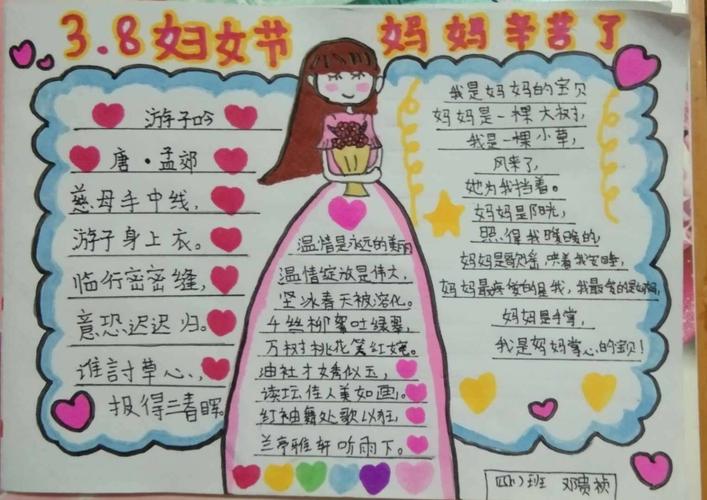 3.8妇女节
妈妈辛苦了
游子吟
唐·孟郊
慈母手中线,
游子身上衣。
临行密密缝,
意恐迟迟归。
谁討草心,
报得三春晖。
温惜是永远的美丽
温情绽放是伟大,
坚冰春天被溶化。
千丝柳絮吐绿翠,
万树桃花笑红
油社才 似玉,
读坛佳人美如画。
红袖舞处歌以狂,
兰亭雅轩听雨下。
我是妈妈的宝贝
妈妈是一棵大树,
我是一棵小草,
风来了,
她为我挡着。
妈妈是阳光,
照得我暖暖的,
妈妈是歌谣,哄着我 睡,
妈妈最疼爱的是我,我最爱的是妈妈,
妈妈是手掌,
我是妈妈掌心的宝贝!
班 邓贵祯